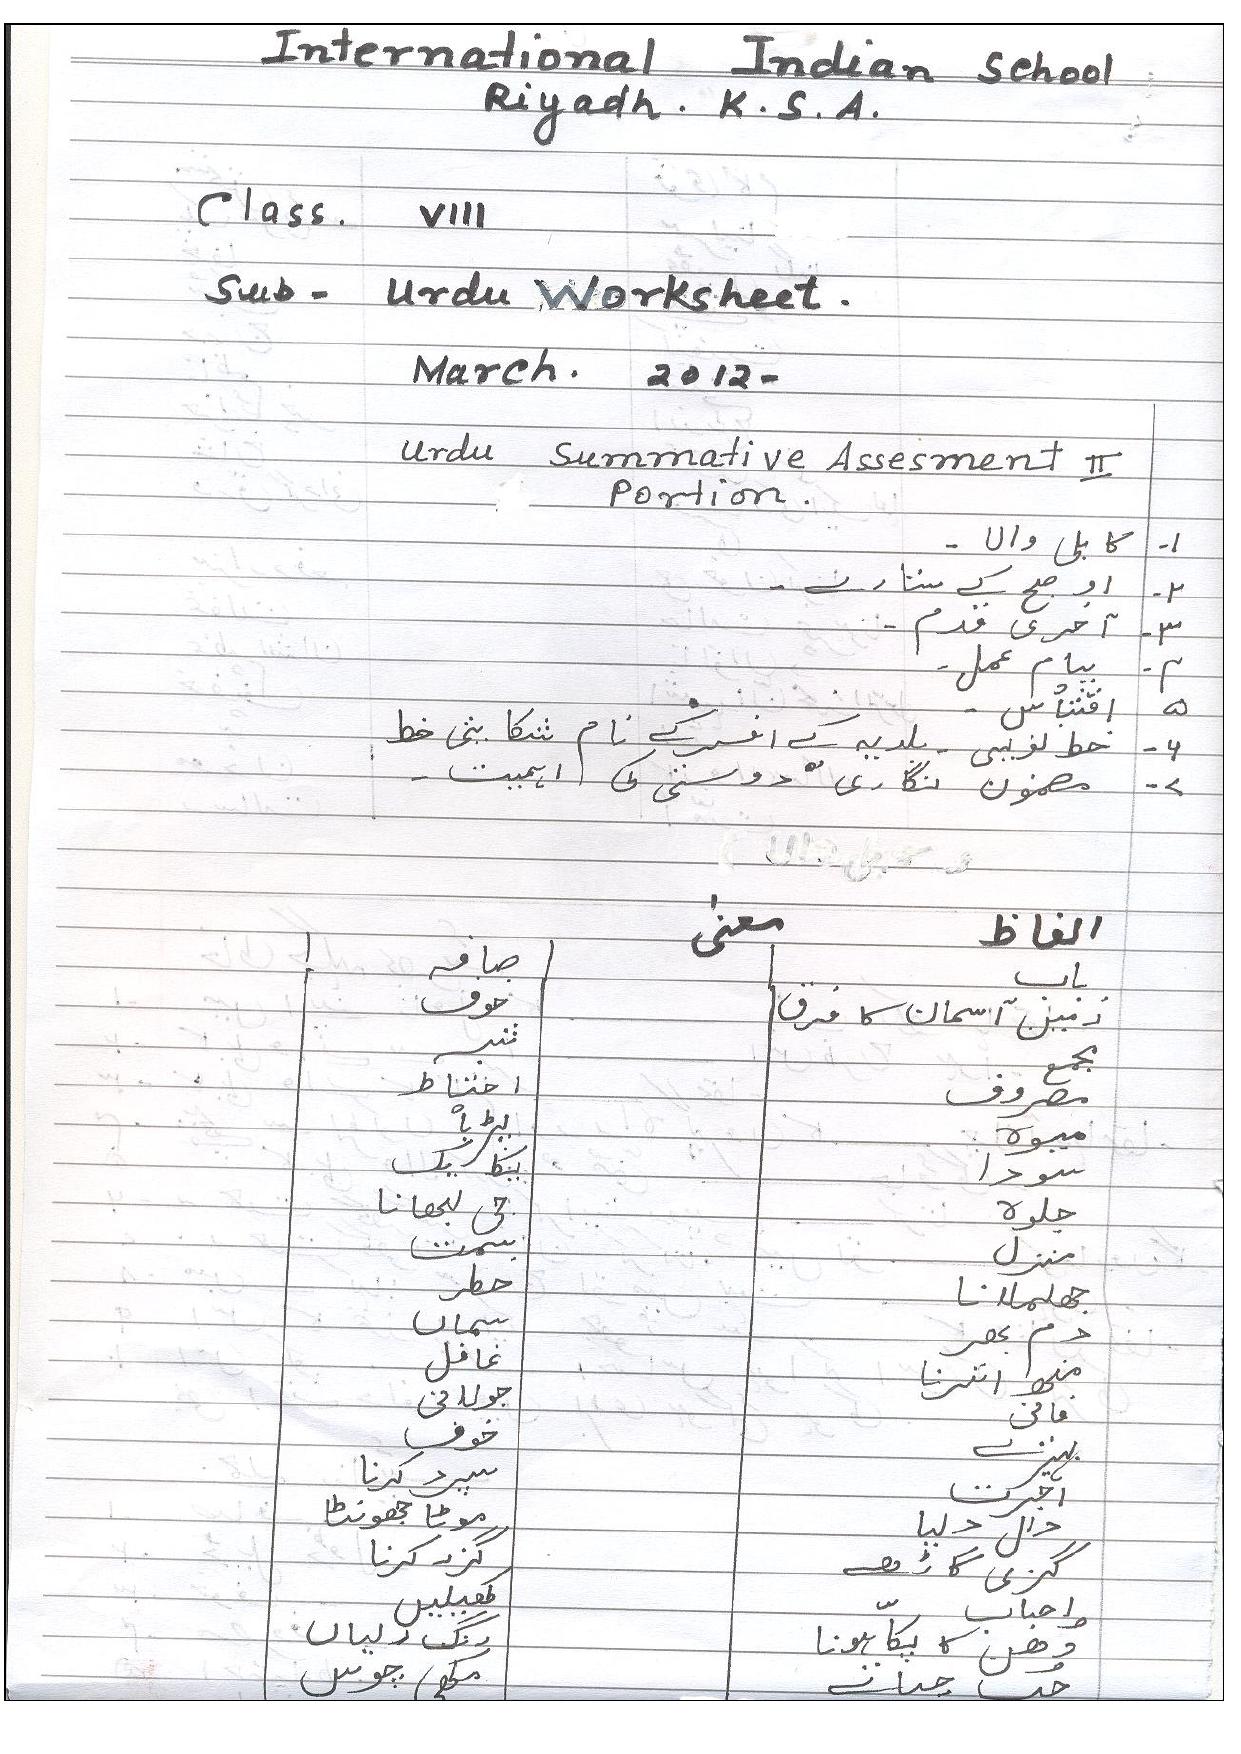 International Indian School
Riyadh. K.S.A.
Class. VIII
Sub- Urdu Worksheet.
March. 2012-
Urdu Summative Assesment II
Portion.
۱- کابلی والا -
۲- او صبح کے ستارے -
۳- آخری قدم -
۴- پیام عمل -
۵ اقتباس -
۶- خط نویسی - بلدیہ کے افسر کے نام شکایتی خط
۷- مضمون نگاری "دوستی کی اہمیت -
الفاظ معنیٰ
باب صافہ
زمین آسمان کا فرق خوف
مجمع
مصروف احتیاط
میوہ
سودا یکا یک
جلوہ جی لبھانا
منزل سمت
جھلملانا خطر
دم بھر سماں
منھ اترنا غافل
فانی جولانی
خوف
اجرت سپرد کرنا
دال دلیا موٹا جھونٹا
گزی گاڑھے گزر کرنا
احباب
دھن کا پکّا ہونا رنگ رلیاں
چپ چپاتے مکھی چوس